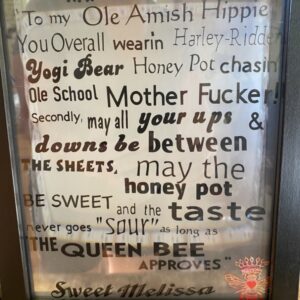 To my Ole Amish Hippie
You Overall wearin Harley-Ridden
Yogi Bear Honey Pot chasin'
Ole School Mother Fucker!
Secondly, may all your ups &
downs be between
THE SHEETS, may the
honey pot
BE SWEET and the taste
never goes "Sour" as long as
THE QUEEN BEE
APPROVES"
Sweet Melissa